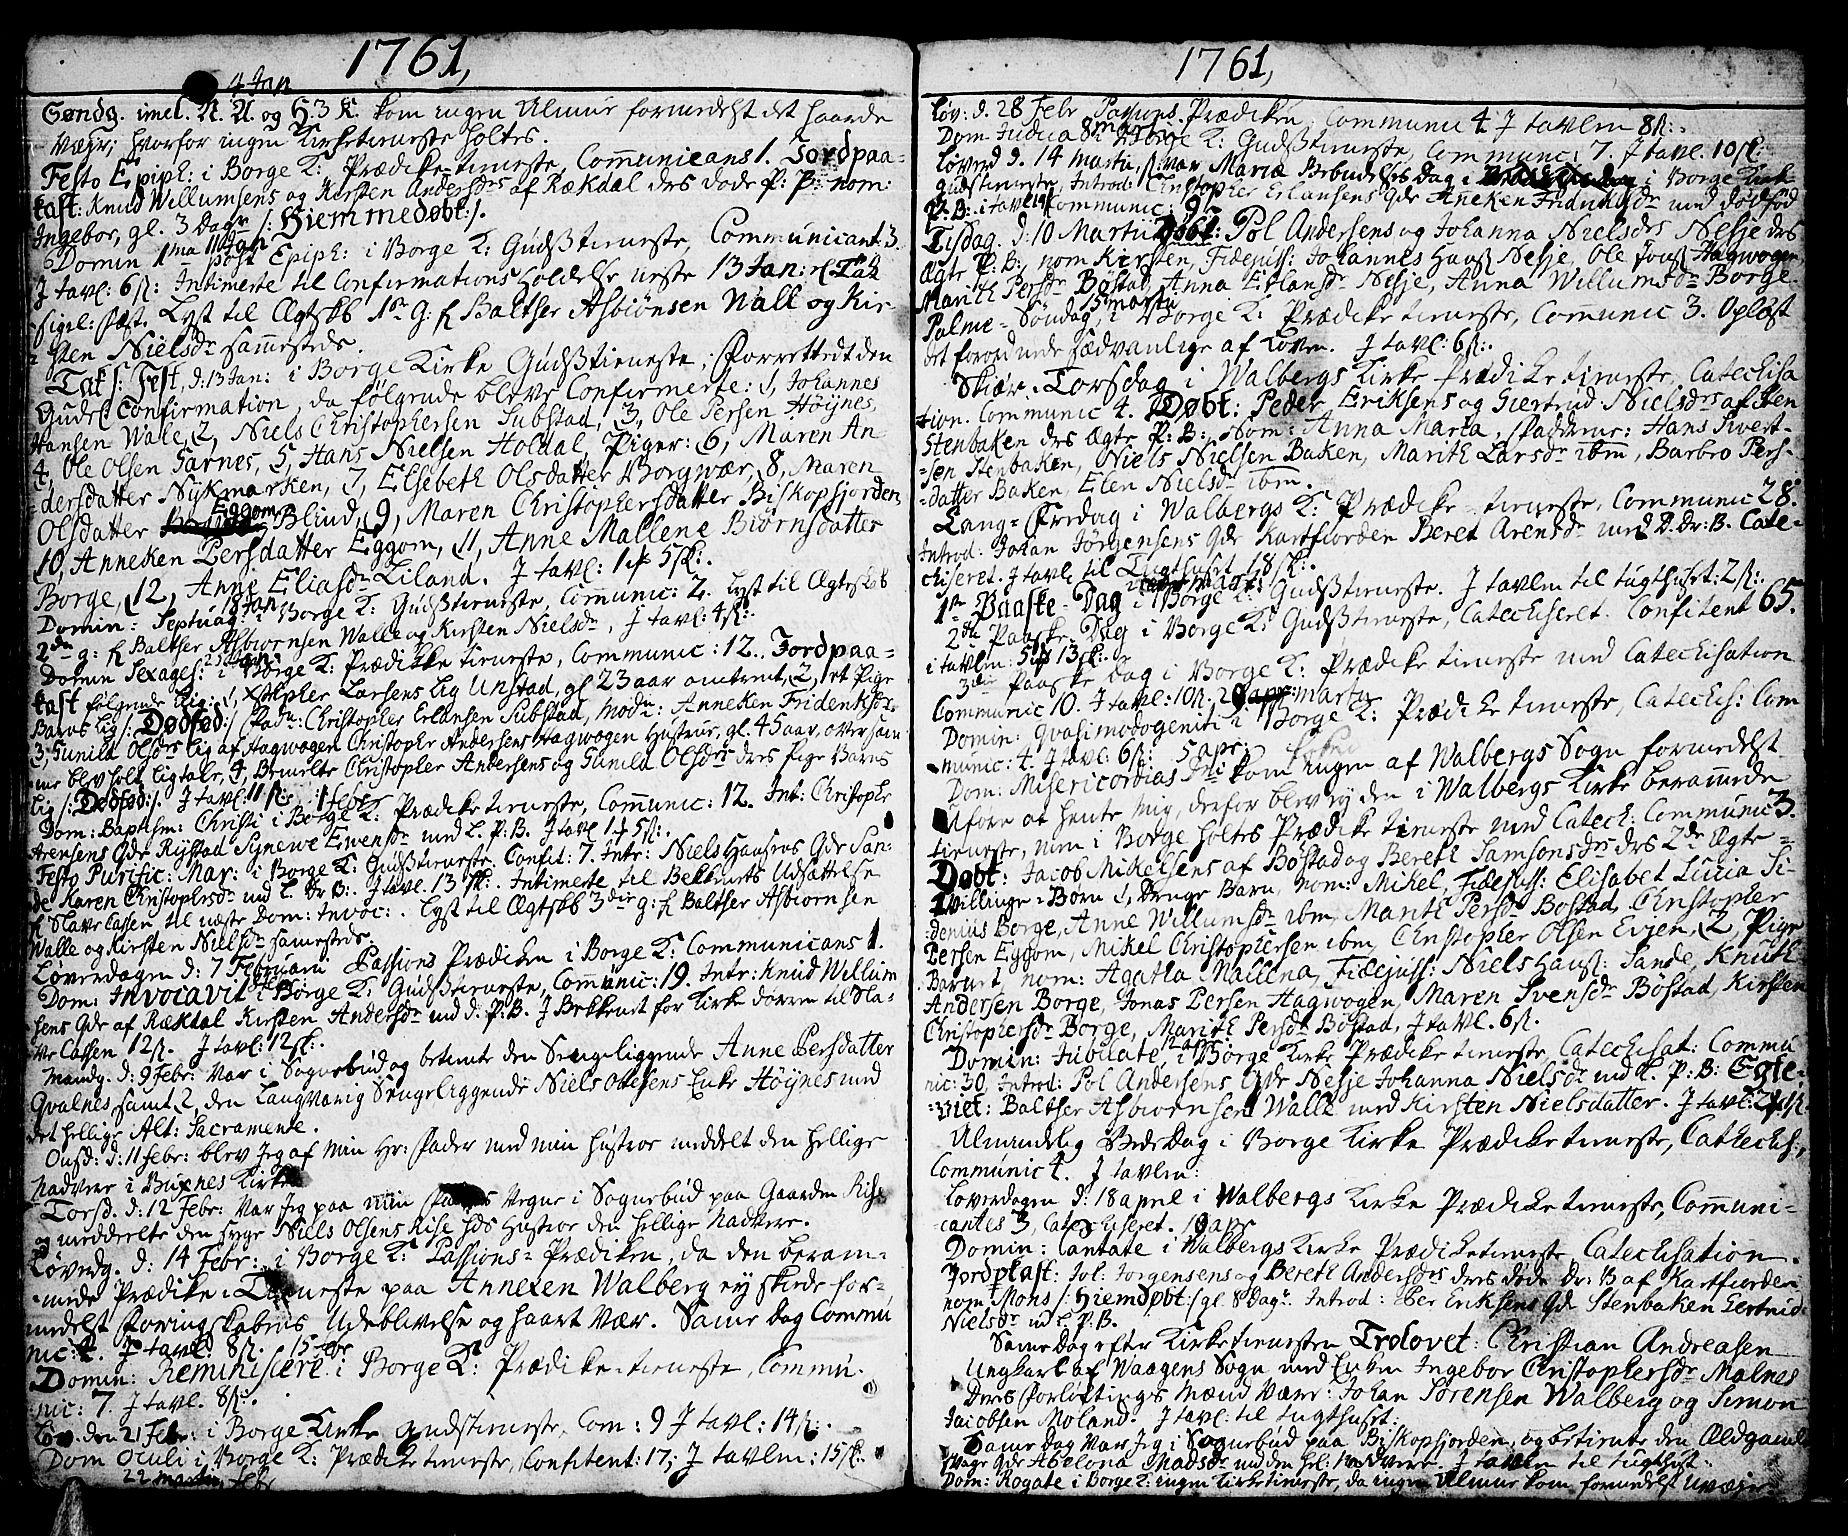 1761,
4 Jan
Søndg. imel. N. A. og H. 3 K. kom ingen Almue formedelst det haarde
Vær; hvorfor ingen Kirketieneste holtes.
Festo Epiph: i Borge K: Prædike-tieneste, Communicans 1. Jordpaa=
kast: Knud Willumsens og Kirsten Andersdrs af Rækdal des døde P: B: nom:
Ingebor, gl. 3 Dage /: Hiemmedøbt:/.
Domin 1ma post Epiph: i Borge K: Gudstieneste, Communicant: 3.
11 Jan
J tavl: 6 s: Intimerte til Confirmations Holdelse neste 13 Jan:
Fæst. Lyst til Ægtskb 1ste G: f Baltser Asbiönsen Wall og Kir-
sten Nielsdr sammesteds.
Taks: Fest, d: 13 Jan: i Borge Kirke Gudstieneste; Forrettedt den
Gudel: Confirmation, da følgende bleve Confirmerte: 1, Johannes
Hansen Wale, 2, Niels Christophersen Substad, 3, Ole Persen Höynes,
4, Ole Olsen Sarnes, 5, Hans Nielsen Holdal, Piger: 6, Maren An
dersdatter Nykmarken, 7, Elsebeth Olsdatter Borgwær, 8, Maren
Olsdatter Eggom Blind, 9, Maren Christophersdatter Biskopsjorden,
10, Anneken Persdatter Eggom, 11, Anne Mallene Biørnsdatter
Borge, 12, Anne Eliasdr Liland. J tavl: 1 5 s:
Domin: Septuag: i Borge K: Gudstieneste, Comunic: 2. Lyst til Ægteskab
18 Jan
2den g: f Baltser Asbiornsen Walle og Kirsten Nielsdr, J tavl: 4 s:
Domin Sexages: i Borge K: Prædikke tieneste, Communic: 12. Jordpaa=
25 Jan
kast følgende Lig: 1, Xstopher Larsens Lig Unstad, gl 23 aar omtrent, 2, et Pige
Barns Lig /: Dødfød:/ Fadr: Christopher Erlansen Substad, Modr: Anneken Fridenksdr
3, Gunila Olsdrs Lig af Hagwogen Christopher Andersens Hagwogen Hustrue, gl. 45 aar, over sam
me blev holt Ligtale, 4, Bemelte Christopher Andersens og Gunila Olsdrs deres Pige Barns
Lig /: Dødfød:/. J tavl: 11 s: 1 febr
Dom: Baptism: Christi i Borge K: Prædike tieneste, Communic: 12. Int: Christophe
Arensens Qde Rystad Synewe Ewensdr med L. P. B. J tavl 1 5 s:
Festo Purific: Mar: i Borge K: Gudstieneste. Confit: 7. Intr: Niels Hansens Qde San-
de Karen Christophersdr med L. Dr B:. J tavl. 13 s:. Intimerte til Bekkenets Udsættelse
f Slave Cassen til næste Dom: Invoc:. Lyst til Ægtskb 3die g: f Baltser Asbiornsen
Walle og Kirsten Nielsdr samesteds.
Løverdagen d: 7 Februarii Passions Prædiken i Borge K: Communicans 1.
Dom: Invocavit i Borge K: Gudstieneste, Communic: 19. Intr: Knud Willum
sens Qde af Rækdal Kirsten Andersdr med d: P. B. J Bekkenet for Kirke dørren til Sla-
ve Cassen 12 s. J tavl: 12 s:.
Mandg. d: 9 Febr: Var i Sognebud og betiente den Sengeliggende Anne Persdatter
Qvalnes samt 2, den Langvarig Sengeliggende Niels Olesens Enke Höynes med
det hellige Alt: Sacramente.
Onsd: d: 11 febr: blev Jeg af Min Hr: Fader med min Hustroe meddelt den Hellige
Nadvere i Buxnes Kirke
Torsd. d: 12 Febr: Var Jeg paa min Faders Vegne i Sognebud paa Gaarden Rise
og meddeelte den syge Niels Olsens Rise Hds Hustroe den hellige Nadvere.
Løverdg. d: 14 Febr: i Borge K: Passions= Prædiken, da den beram=
mede Prædike-Tieneste paa Annexen Walberg ey skede for-
medelst Føringskabens Udeblivelse og haart Vær. Same dag Commu
nic: 2. J tavl: 8 s. 15 febr
Domin: Reminiscere i Borge K: Prædike-tieneste, Commu.
nic: 7. J tavl. 8 s:.
Løv. den 21 Febr: i Borge Kirke Gudstieneste, Com: 9 J tavl: 14 s:.
Dom Oculi i Borge K: Prædike tieneste, Confitent: 17; J tavlen: 15 s:.
22 febr
1761,
Løv: d. 28 Febr Passions Prædiken, Communic 4. J tavlen 8 s:.
Dom Judica i Borge K: Gudstieneste, Communic: 7. J tavl. 10 s:
8 martii
Løverd d. 14 martii, var Mariæ Bebudelses Dag i Borge Kirke
Gudstieneste, Introd: Christopher Erlansens Qde Aneken Fridenksdr med dødfød
P. B. i tavl Communic: 9
Tisdag. d: 10 Martii Døbt: Pol Andersens og Johanna Nielsdrs Nesje des
Ægte P. B:, nom Kirsten, Fidejuss: Johannes Hans Nesje, Ole Jons Hagwogen
Marith Persdr Bøstad, Anna Erlansdr Nesje, Anna Willumsdr Borge.
Palme= Söndag i Borge K: Prædike tieneste, Communic 3. Oplæst
15 martii
det forordnede sædvanlige af Loven. J tavl: 6 s:.
Skiær= Torsdag i Walbergs Kirke Prædike tieneste, Catechisa
tion. Communic 4. Døbt: Peder Eriksens og Giertrud Nielsdrs af Sten
Stenbaken des Ægte P: B: Nom: Anna Marta, Fadderne: Hans Sivert-
sen Stenbaken, Niels Nielsen Baken, Marith Larsdr ibm, Barbro Pers-
datter Baken, Elen Nielsdr ibm.
Lang= Fredag i Walbergs K: Prædike-tieneste, Communic 28.
Introd: Johan Jørgensens Qde Kartfiorden Beret Arensdr med D. Dr: B. Cate-
chiseret. J tavl: til Tugthuset 18 s:.
1ste Paaske-Dag i Borge K: Gudstieneste. J tavlen til tugthuset: 2 s:.
2den Paaske-Dag i Borge K: Gudstieneste, Catechiseret. Confitent 65.
i tavlen: 5 13 s:.
3die Paaske Dag i Borge K: Prædike tieneste med Catechisation
Communic 10. J tavl: 10 s. 29 martii
Domin: Qvasimodogeniti i Borge K: Prædike tieneste, Catechis: Com
munic: 4. J tavl: 6 s: 5 apr:
Dom: Misericordias Dni kom ingen af Walbergs Sogn formedelst
Uföre at hente Mig, derfor blev ey den i Walbergs Kirke berammede
tieneste, men i Borge holtes Prædike tieneste med Catech: Communic 3.
Døbt: Jacob Mikelsens af Bøstad og Bereth Samsonsdrs des 2de Ægte=
Tvillinge= Børn 1, Drenge Barn, nom: Mikel, Fidejuss: Elisabet Lucia Si-
denius Borge, Anne Willumsdr ibm, Marith Persdr Bøstad, Christopher
Persen Eggom, Mikel Christophersen ibm, Christopher Olsen Evjen, 2, Pige
Barnet, nom: Agatha Mallena, Fidejuss: Niels Hans: Sande, Knuth
Andersen Borge, Jonas Persen Hagwogen, Maren Svensdr Bøstad, Kirsten
Christophersdr Borge, Marith Persdr Bøstad, J tavl. 6 s.
Domin: Jubilate i Borge Kirke Prædike tieneste, Catechisat: Commu
12 apr
nic: 30. Introd: Pol Andersens Qde Nesje Johanna Nielsdr med L. P: B: Egte-
viet: Baltser Asbiornsen Walle med Kirsten Nielsdatter. J tavl:
Almindelig Bede Dag i Borge Kirke Prædike tieneste, Cathechis:,
Communic 4. J tavlen:
Löverdagen d: 18 april i Walbergs Kirke Prædike tieneste, Communi-
cantes 3, Catechiseret. 19 apr
Domin: Cantate i Walbergs Kirke Prædike tieneste, Catechisation.
Jordkast: Joh: Jorgensens og Bereth Andersdrs deres døde Dr: B af Kartfiorden
nom Mons /: Hiemdøbt:/ gl. 8 Dagr. Introd: Per Eriksens Qde Stenbaken Gertrud
Nielsdr med L. P. B.
Same dag efter Kirke tienesten Trolovet: Christian Andreasen
Ungkarl af Waagens Sogn med Enken Ingebor Christophersdr Malnes
Deres Forløftings Mænd Være: Johan Sørensen Walberg og Simon
Jacobsen Moland. J tavl: til tugthuset:
Same dag Var Jeg i Sognebud paa Biskopsjorden, og betiente den Ældgamle
svage Qde Abelona Madsdr med den Hel: Nadvere. J tavlen til tugthuset:.
Dom: Rogate i Borge K: ingen Kirketieneste, da ingen Almue kom formedelst uveir